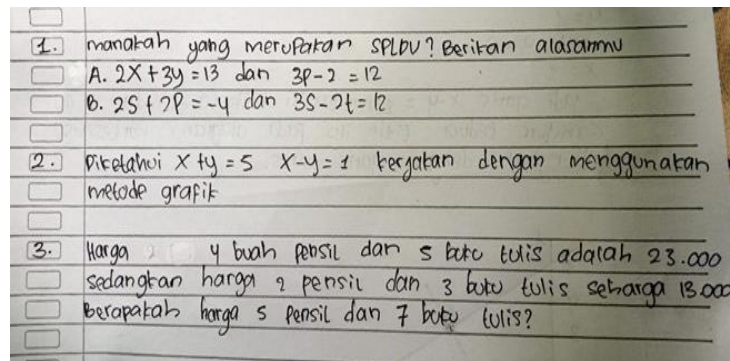 1. manakah yang merupakan SPLDV? Berikan alasanmu
A. 2x+3y=13 dan 3p-2=12
B. 2s+2p=-4 dan 3s-2t=12
2. Diketahui x+y=5 x-y=1 kerjakan dengan menggunakan
metode grafik
3. Harga 4 buah pensil dan 5 buku tulis adalah 23.000
sedangkan harga 2 pensil dan 3 buku tulis seharga 13.000
Berapakah harga 5 pensil dan 7 buku tulis?